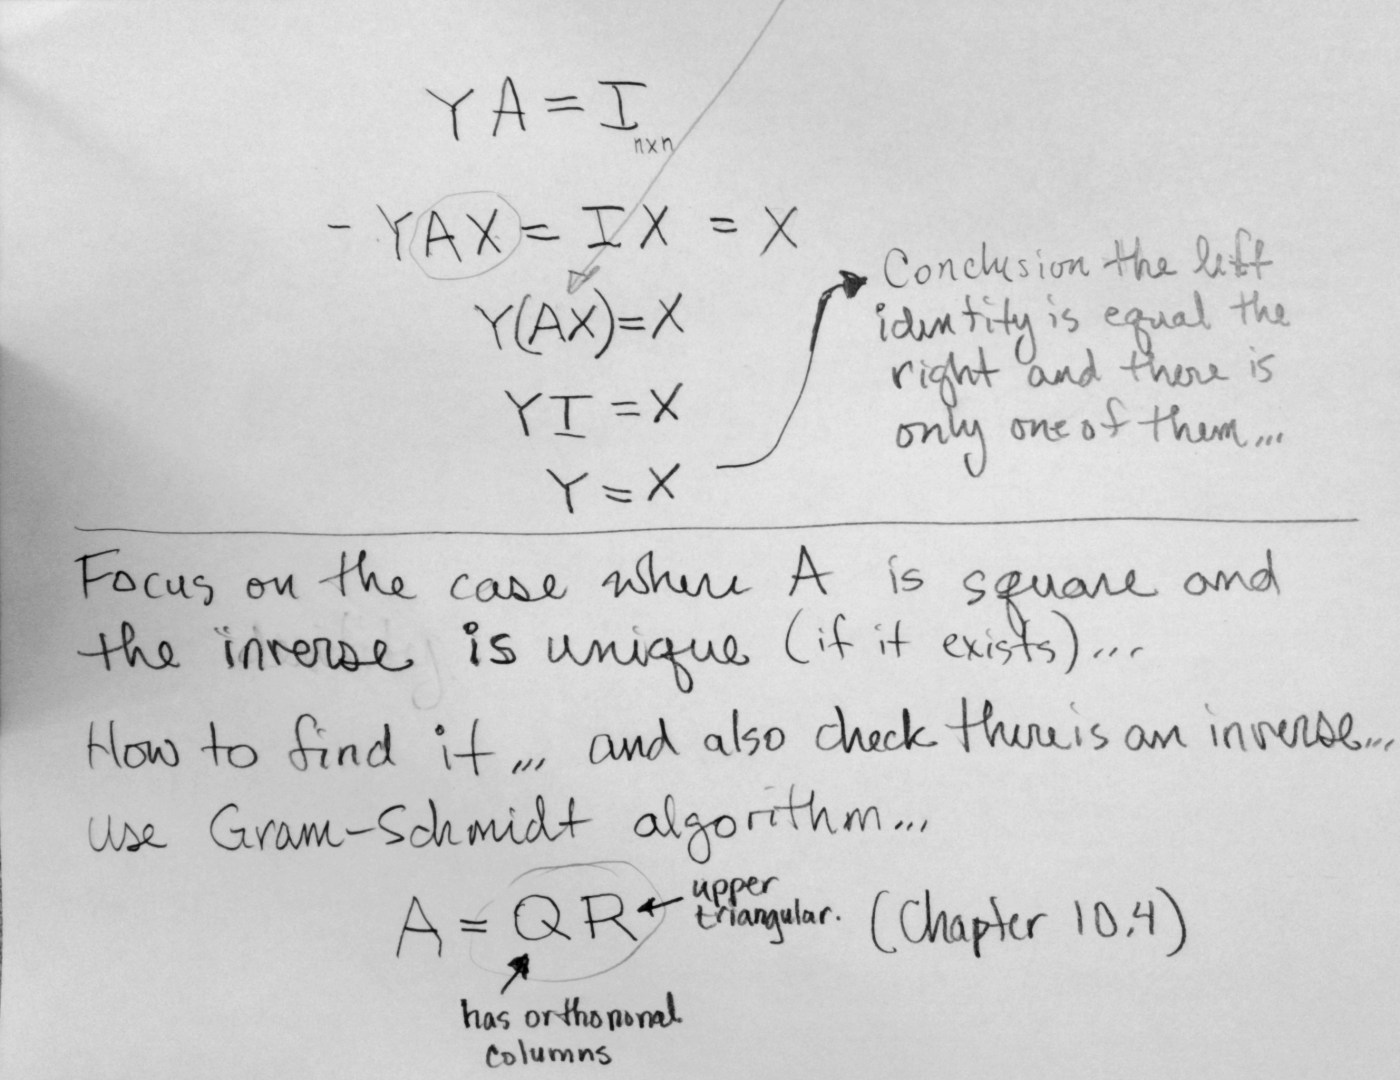 YA = I n×n
- YAX = IX = X
Y(AX) = X
YI = X
Y = X
Conclusion the left
identity is equal the
right and there is
only one of them...
Focus on the case where A is square and
the inverse is unique (if it exists)...
How to find it ... and also check there is an inverse...
use Gram-Schmidt algorithm...
A = QR
upper
triangular.
(Chapter 10.4)
has orthononal
columns